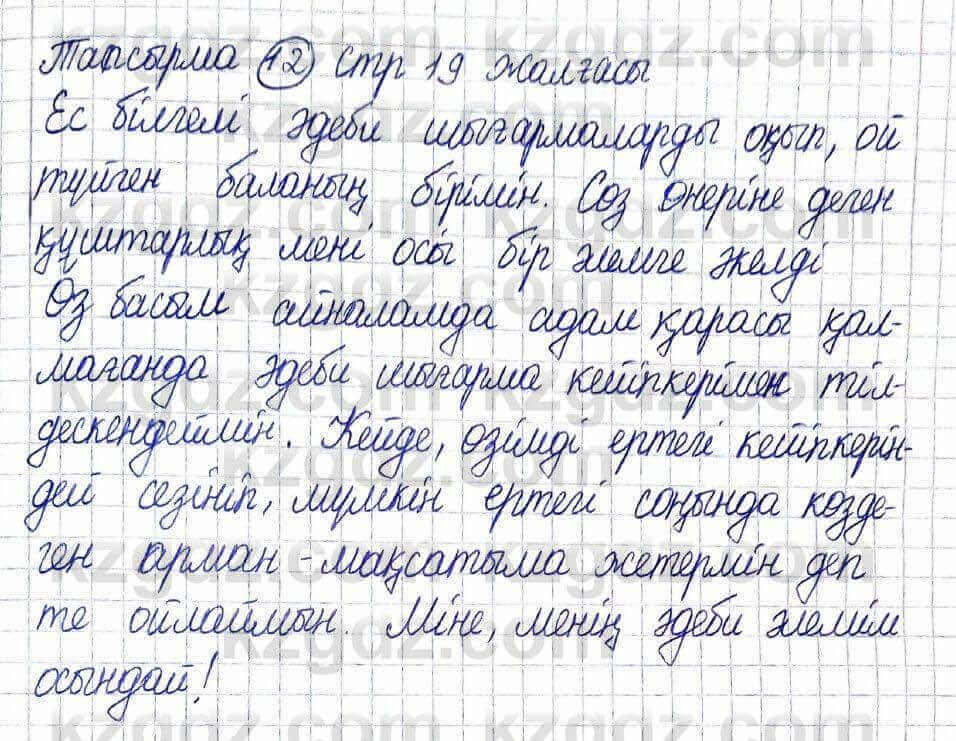 Тапсырма 12 стр 19 жалғасы
Ес білгелі әдеби шығармаларды оқып, ой
түйген баланың бірімін. Сөз өнеріне деген
құштарлық мені осы бір әлемге әкелді
Өз басым айналамда адам қарасы қал-
мағанда әдеби шығарма кейіпкерімен тіл-
дескендеймін. Кейде, өзімді ертегі кейіпкерін-
дей сезініп, мүмкін ертегі соңында көзде-
ген арман-мақсатыма жетермін деп
те ойлаймын. Міне, менің әдеби әлемім
осындай!
kzgdz.com